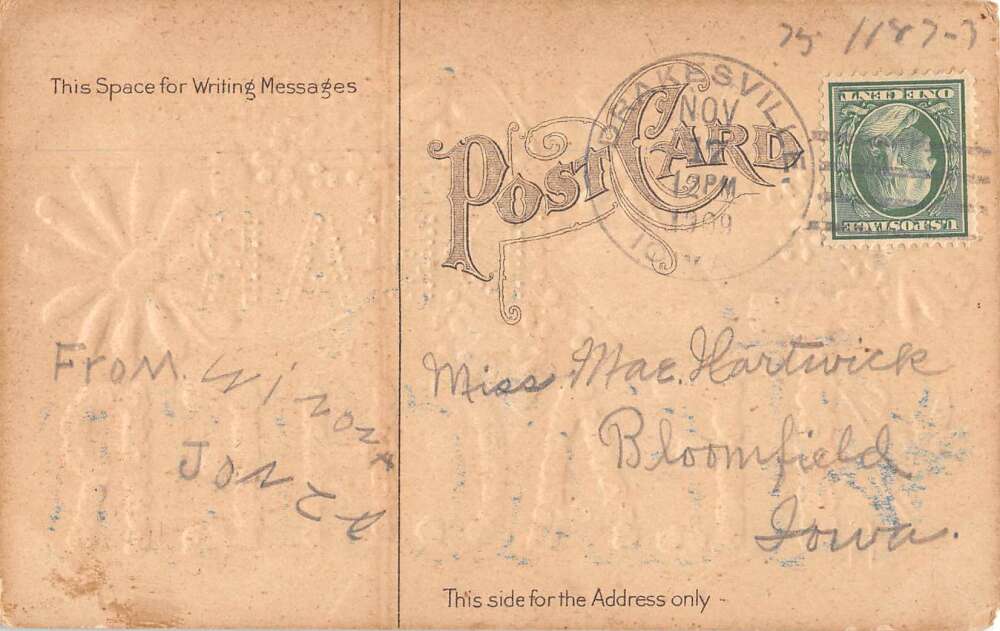 75 1187-3
This Space for Writing Messages
POST CARD
DRAKESVILLE
NOV
17
12PM
1909
IOWA
ONE CENT
U.S. POSTAGE
From. Winona
Jones
Miss. Mae. Hartwick
Bloomfield
Iowa.
This side for the Address only -